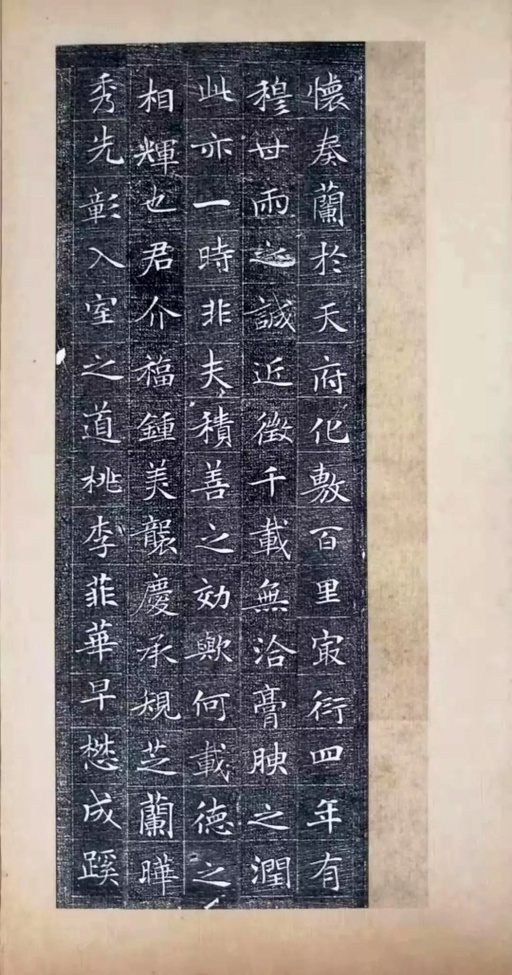 懷奏蘭於天府化敷百里寂衍四年有
穆丗雨之誠近徵千載無洽膏腴之潤
此亦一時非夫積善之効歟何載德之
相輝也君介福鍾美襲慶承規芝蘭曄
秀先彰入室之道桃李菲華早懋成蹊